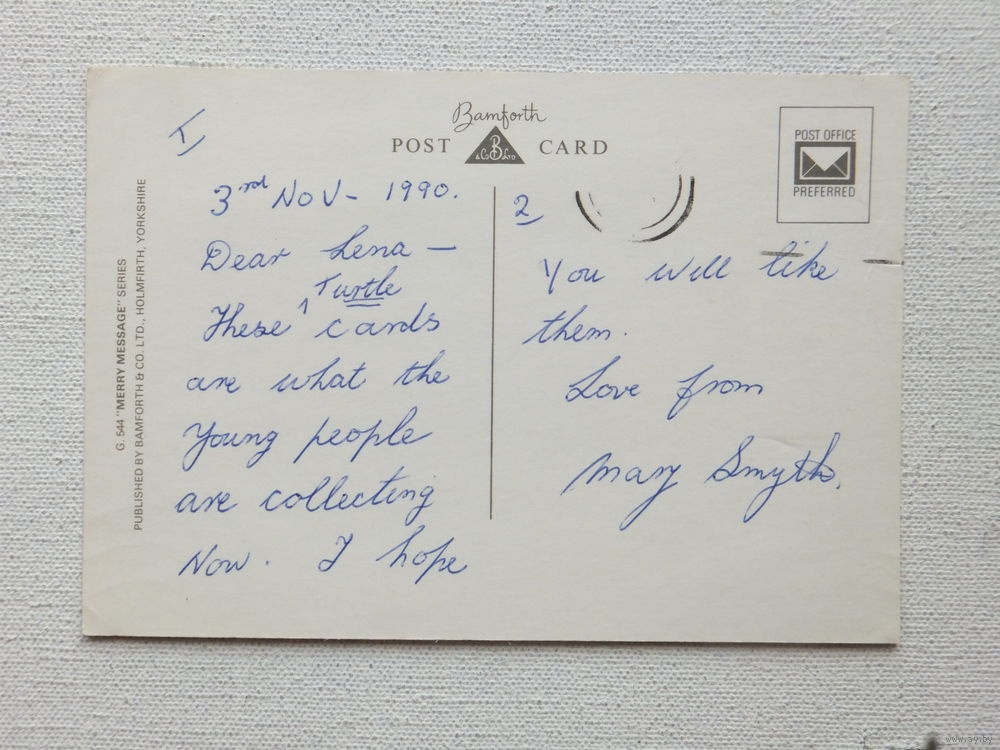 Bamforth
POST CARD
B
& Co LTD
POST OFFICE
PREFERRED
G. 544 "MERRY MESSAGE" SERIES
PUBLISHED BY BAMFORTH & CO. LTD., HOLMFIRTH, YORKSHIRE
1
3rd NOV - 1990.
Dear Lena —
Turtle
These ^ cards
are what the
Young people
are collecting
Now. I hope
2
You will like
them.
Love from
Mary Smyth.
www.ay.by